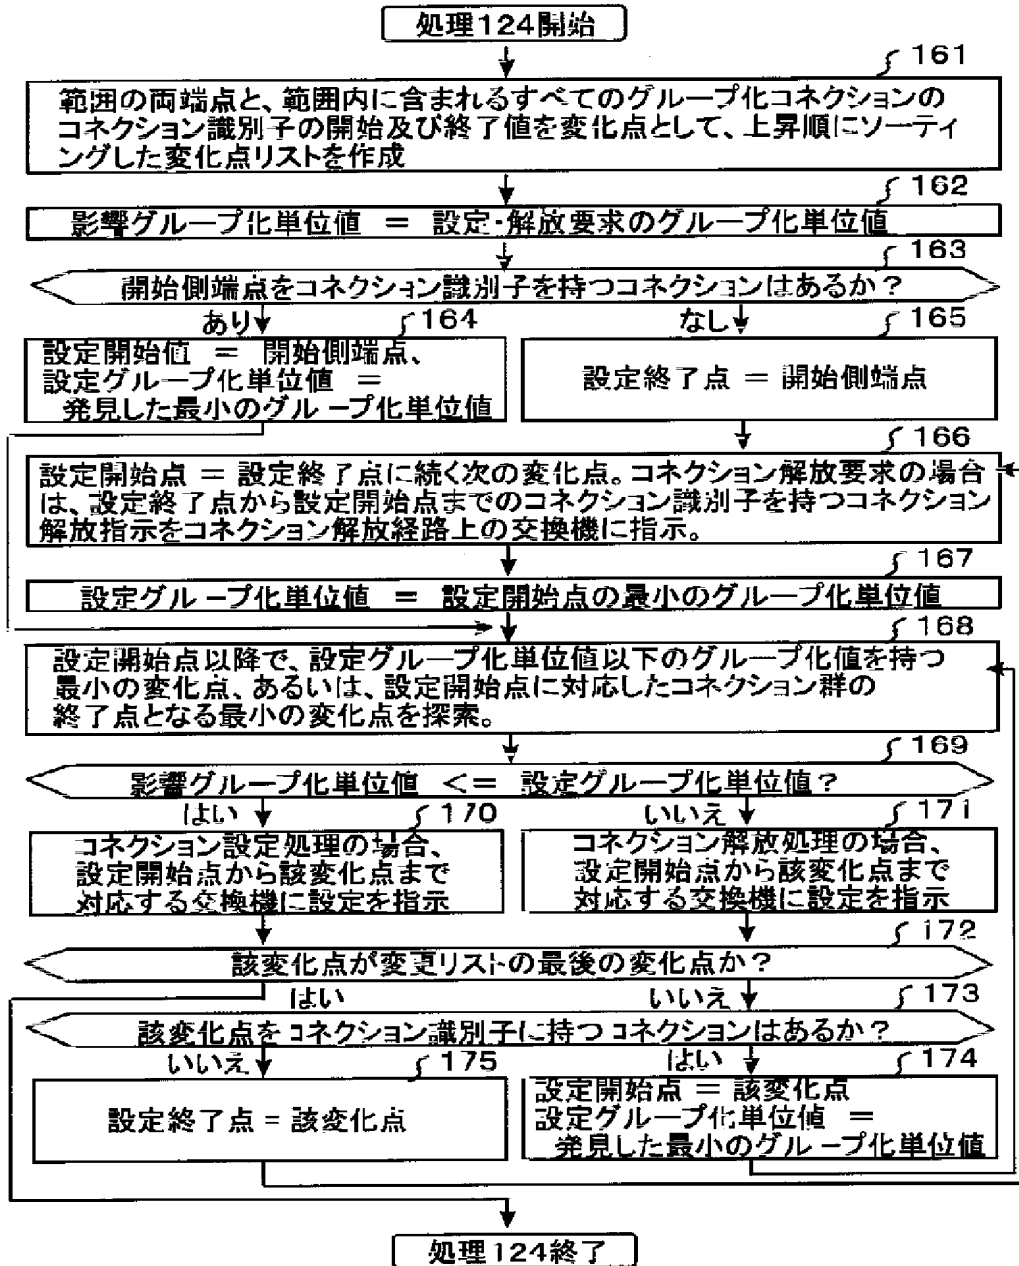 処理124開始
161
範囲の両端点と、範囲内に含まれるすべてのグループ化コネクションの
コネクション識別子の開始及び終了値を変化点として、上昇順にソーティ
ングした変化点リストを作成
162
影響グループ化単位値 = 設定・解放要求のグループ化単位値
163
開始側端点をコネクション識別子を持つコネクションはあるか?
あり
164
なし
165
設定開始値 = 開始側端点、
設定グループ化単位値 =
発見した最小のグループ化単位値
設定終了点 = 開始側端点
166
設定開始点 = 設定終了点に続く次の変化点。コネクション解放要求の場合
は、設定終了点から設定開始点までのコネクション識別子を持つコネクション
解放指示をコネクション解放経路上の交換機に指示。
167
設定グループ化単位値 = 設定開始点の最小のグループ化単位値
168
設定開始点以降で、設定グループ化単位値以下のグループ化値を持つ
最小の変化点、あるいは、設定開始点に対応したコネクション群の
終了点となる最小の変化点を探索。
169
影響グループ化単位値 <= 設定グループ化単位値?
はい
170
いいえ
171
コネクション設定処理の場合、
設定開始点から該変化点まで
対応する交換機に設定を指示
コネクション解放処理の場合、
設定開始点から該変化点まで
対応する交換機に設定を指示
172
該変化点が変更リストの最後の変化点か?
はい
いいえ
173
該変化点をコネクション識別子に持つコネクションはあるか?
いいえ
175
はい
174
設定終了点 = 該変化点
設定開始点 = 該変化点
設定グループ化単位値 =
発見した最小のグループ化単位値
処理124終了